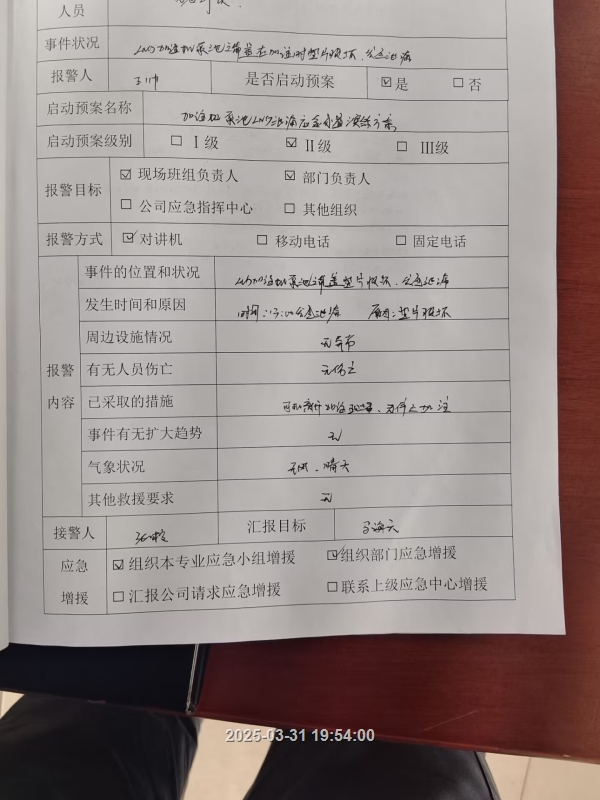 人员
事件状况 LNG加注机泵池上罐盖在加注时垫片损坏、发生泄漏
报警人 王帅 是否启动预案 ☑是 ☐否
启动预案名称 加注机泵池LNG泄漏应急处置演练方案
启动预案级别 ☐Ⅰ级 ☑Ⅱ级 ☐Ⅲ级
报警目标 ☑现场班组负责人 ☑部门负责人
☐公司应急指挥中心 ☐其他组织
报警方式 ☑对讲机 ☐移动电话 ☐固定电话
报警内容
事件的位置和状况 LNG加注机泵池罐盖垫片损坏、发生泄漏
发生时间和原因 时间:15:00发生泄漏 原因:垫片损坏
周边设施情况 无异常
有无人员伤亡 无伤亡
已采取的措施
事件有无扩大趋势 无
气象状况 无风、晴天
其他救援要求 无
接警人 汇报目标
应急增援 ☑组织本专业应急小组增援 ☑组织部门应急增援
☐汇报公司请求应急增援 ☐联系上级应急中心增援
2025-03-31 19:54:00